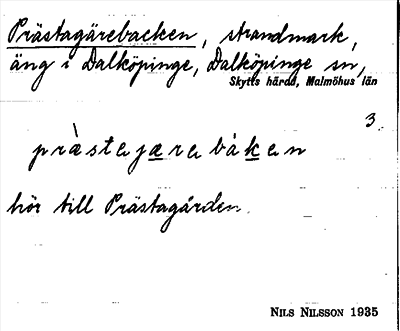 Prästagärebacken, strandmark,
äng i Dalköpinge, Dalköpinge sn,
Skytts härad, Malmöhus län
3.
pràstajæra bákan
hör till Prästagården.
NILS NILSSON 1935